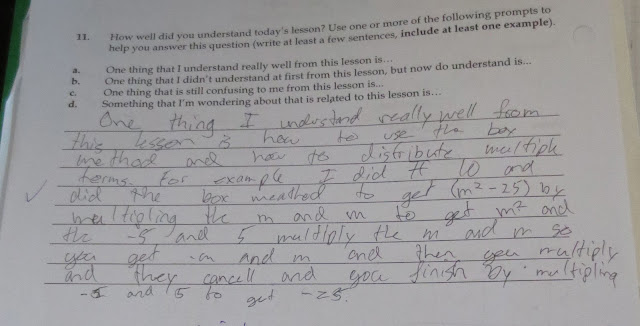 11. How well did you understand today's lesson? Use one or more of the following prompts to
help you answer this question (write at least a few sentences, include at least one example).
a. One thing that I understand really well from this lesson is...
b. One thing that I didn't understand at first from this lesson, but now do understand is...
c. One thing that is still confusing to me from this lesson is...
d. Something that I'm wondering about that is related to this lesson is...
One thing I understand really well from
this lesson is how to use the box
method and how to distribute multiple
terms. For example I did # 10 and
did the box meathod to get (m²-25) by
multipling the m and m to get m² and
the -5 and 5 multiply the m and m so
you get -m and m and then you multiply
and they cancell and you finish by multipling
-5 and 5 to get -25.